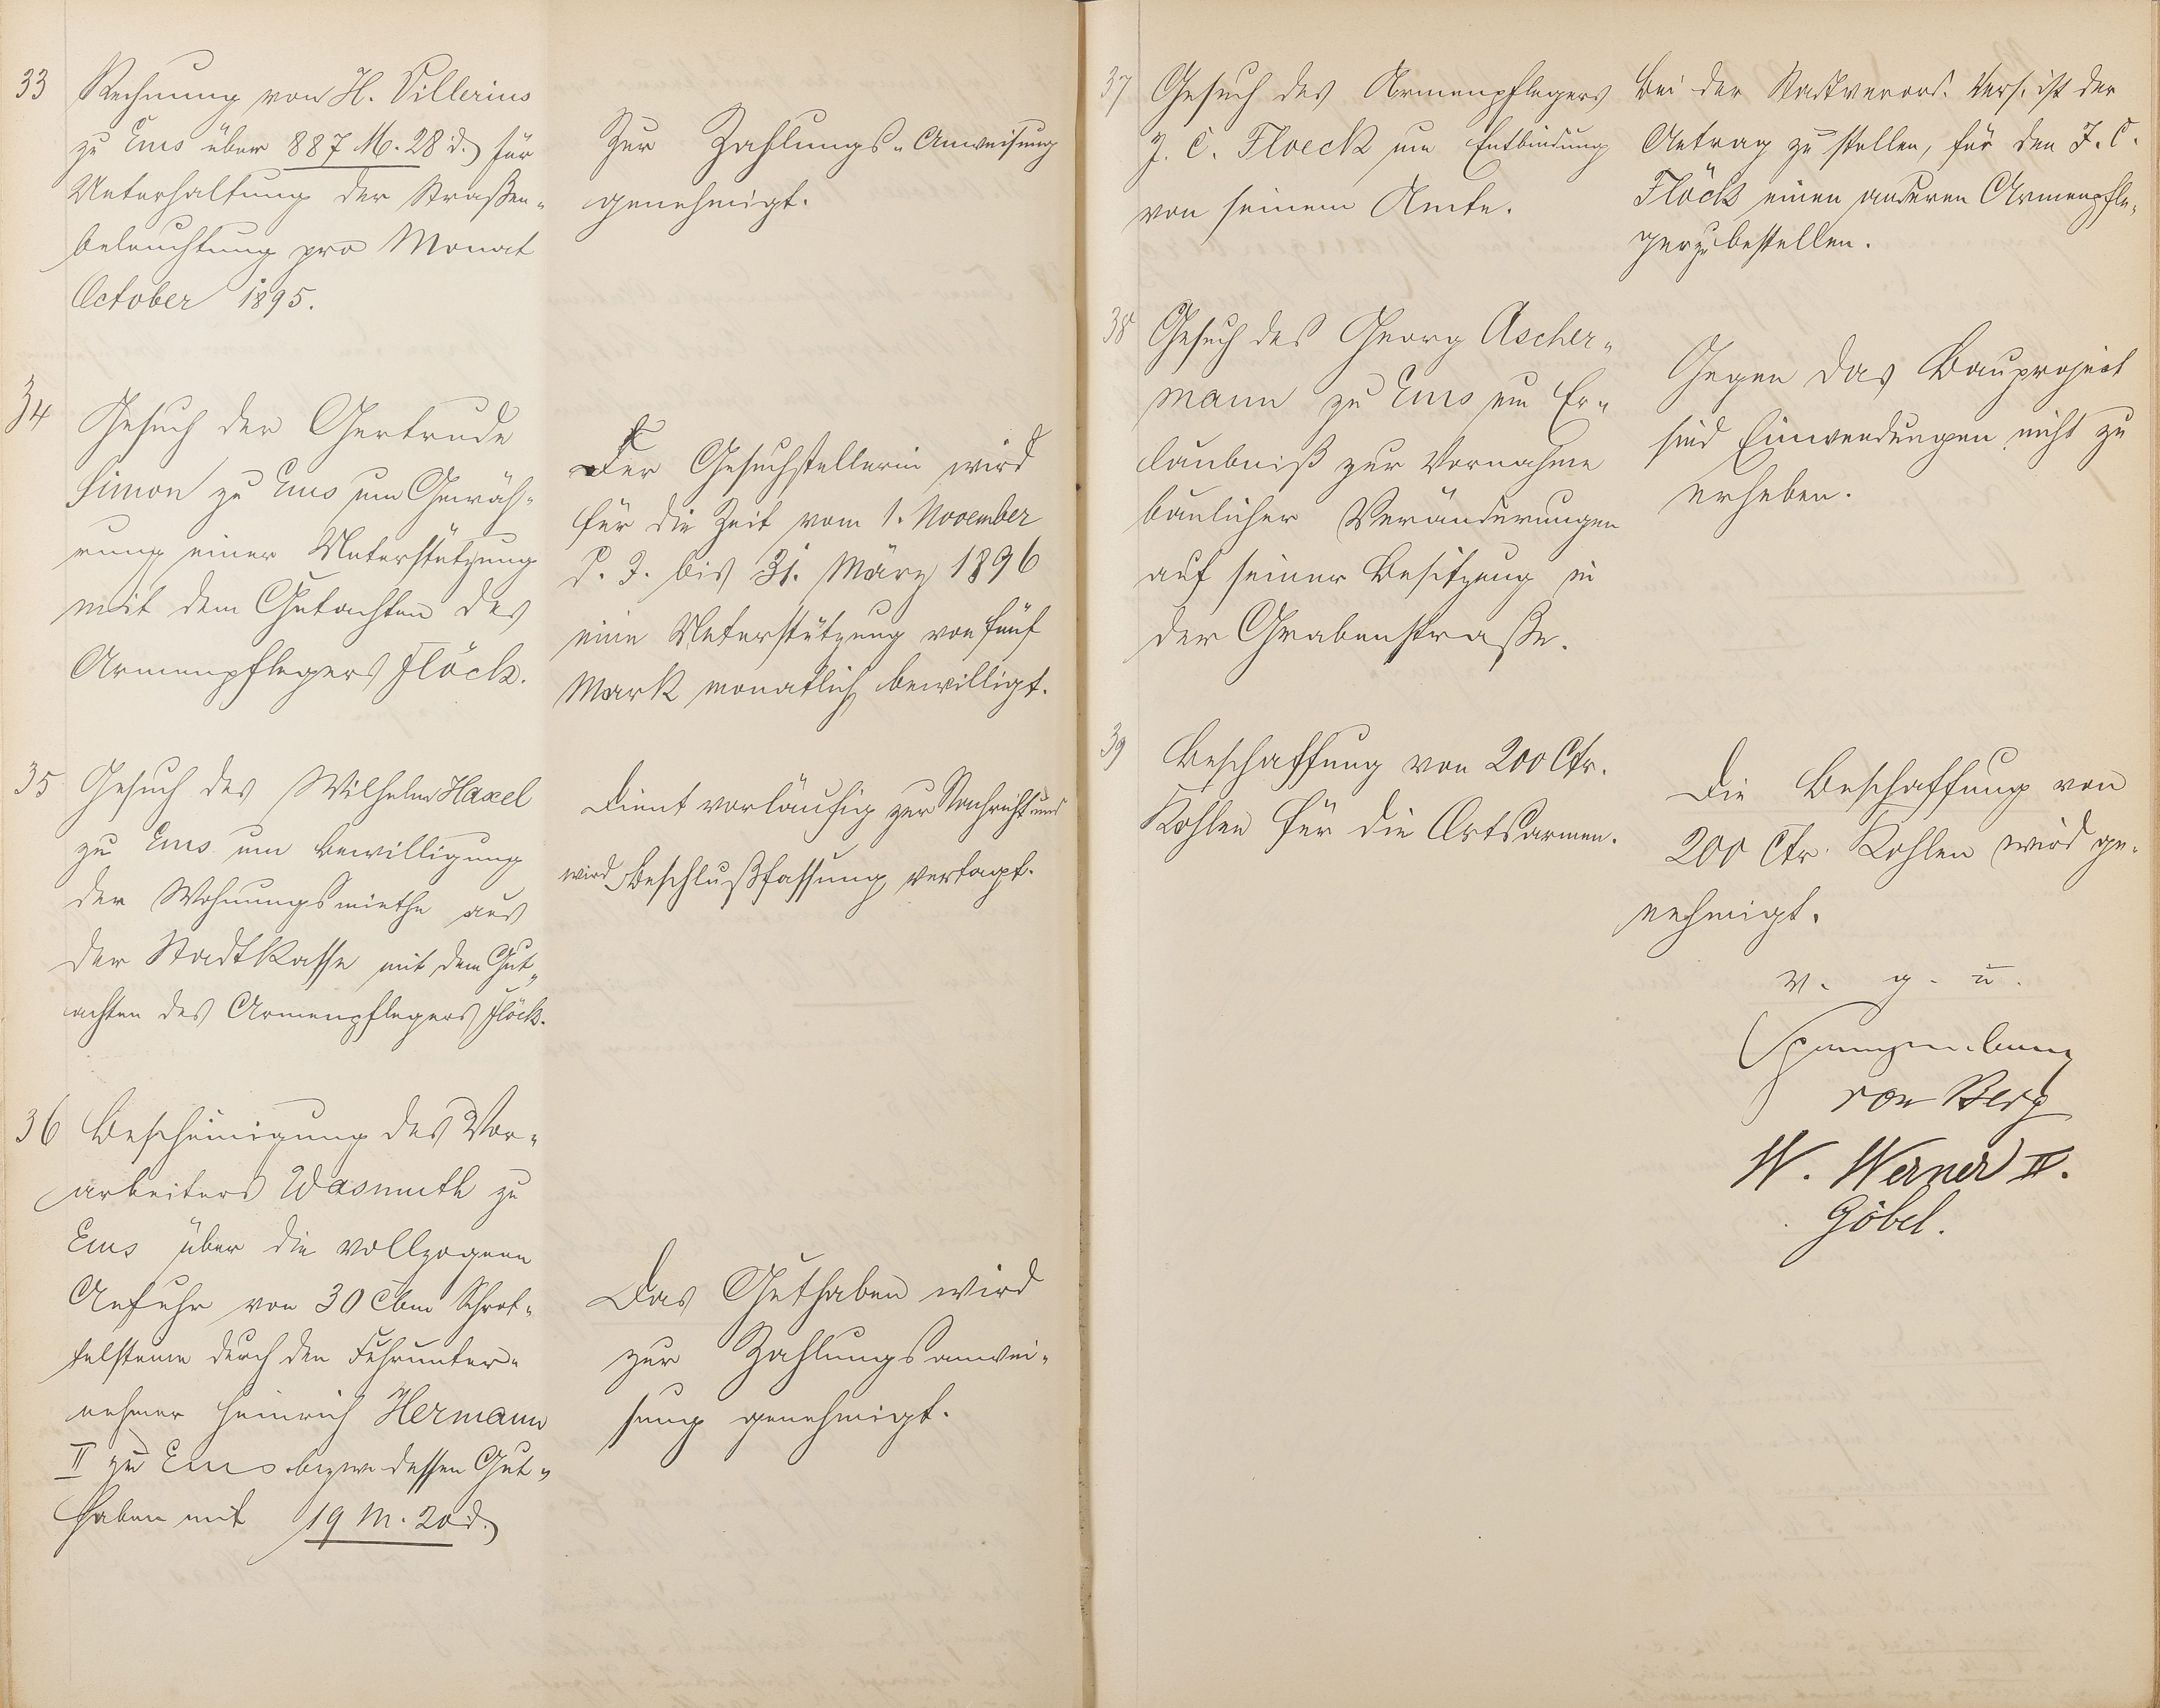 33 Rechnung von H. Villerius
zu Ems über 887 M. 28 d. für
Unterhaltung der Straßen-
beleuchtung pro Monat
October 1895.
Zur Zahlungs-Anweisung
genehmigt.
34 Gesuch der Gertrude
Simon zu Ems um Gewäh-
rung einer Unterstützung
mit dem Gutachten des
Armenpflegers Flöck.
Der Gesuchstellerin wird
für die Zeit vom 1. November
d. J. bis 31. März 1896
eine Unterstützung von fünf
Mark monatlich bewilligt.
35 Gesuch des Wilhelm Haxel
zu Ems um Bewilligung
der Wohnungsmiethe aus
der Stadtkasse mit dem Gut-
achten des Armenpflegers Flöck.
Dient vorläufig zur Nachricht und
wird Beschlußfassung vertagt.
36 Bescheinigung des Vor-
arbeiters Wasmuth zu
Ems über die vollzogene
Anfuhr von 30 Cbm Schrot-
telsteine durch den Fuhrunter-
nehmer Heinrich Hermann
II zu Ems bezw. dessen Gut-
haben mit 19 M. 20 d.
Das Guthaben wird
zur Zahlungsanwei-
sung genehmigt.
37 Gesuch des Armenpflegers
J. C. Floeck um Entbindung
von seinem Amte.
Bei der Stadtverord. Vers. ist der
Antrag zu stellen, für den J. C.
Flöck einen anderen Armenpfle-
ger zu bestellen.
38 Gesuch des Georg Ascher-
mann zu Ems um Er-
laubniß zur Vornahme
baulicher Veränderungen
auf seiner Besitzung in
der Grabenstraße.
Gegen das Bauproject
sind Einwendungen nicht zu
erheben.
39 Beschaffung von 200 Ctr.
Kohlen für die Ortsarmen.
Die Beschaffung von
200 Ctr. Kohlen wird ge-
nehmigt.
v. g. u.
Spangenberg
von Berg
W. Werner II.
Göbel.